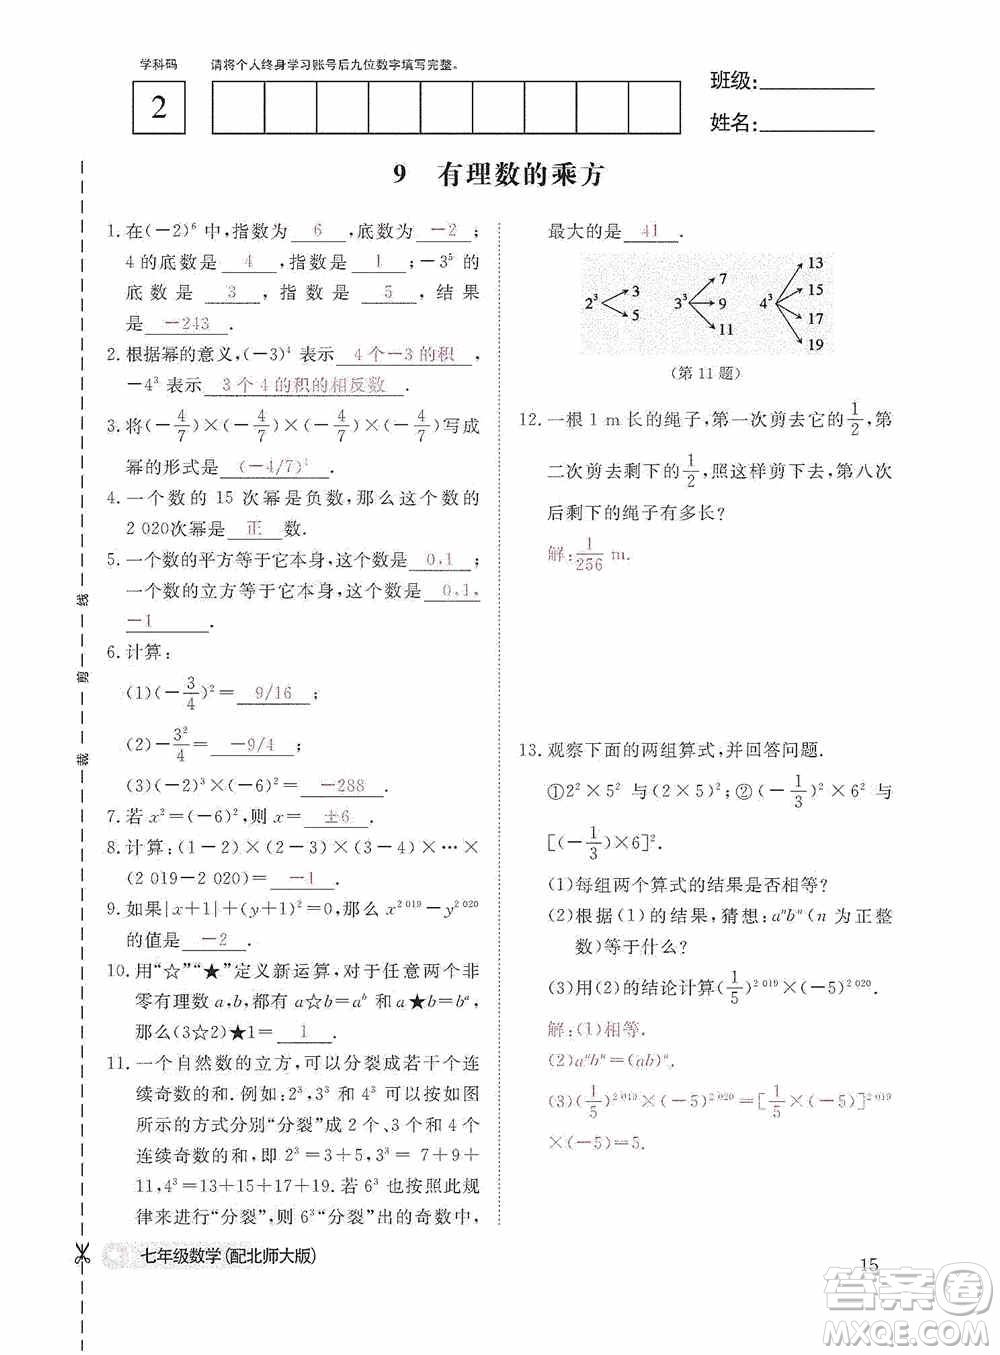 学科码 请将个人终身学习账号后九位数字填写完整。
2
班级:
姓名:
9 有理数的乘方
1. 在(－2)⁶ 中,指数为 6 ,底数为 －2 ;
4 的底数是 4 ,指数是 1 ;－3⁵ 的
底数是 3 ,指数是 5 ,结果
是 －243 .
2. 根据幂的意义,(－3)⁴ 表示 4 个－3 的积 ,
－4³ 表示 3 个 4 的积的相反数 .
3. 将(－4/7)×(－4/7)×(－4/7)×(－4/7)写成
幂的形式是 (－4/7)⁴ .
4. 一个数的 15 次幂是负数,那么这个数的
2 020次幂是 正 数.
5. 一个数的平方等于它本身,这个数是 0,1 ;
一个数的立方等于它本身,这个数是 0,1,
－1 .
6. 计算:
(1)(－3/4)²= 9/16 ;
(2)－3²/4= －9/4 ;
(3)(－2)³×(－6)²= －288 .
7. 若 x²=(－6)²,则 x= ±6 .
8. 计算:(1－2)×(2－3)×(3－4)×…×
(2 019－2 020)= －1 .
9. 如果|x＋1|＋(y＋1)²=0,那么 x²⁰¹⁹－y²⁰²⁰
的值是 －2 .
10. 用“☆”“★”定义新运算,对于任意两个非
零有理数 a,b,都有 a☆b=aᵇ 和 a★b=bᵃ,
那么(3☆2)★1= 1 .
11. 一个自然数的立方,可以分裂成若干个连
续奇数的和.例如:2³,3³ 和 4³ 分别可以按如图
所示的方式分别“分裂”成 2 个、3 个和 4 个
连续奇数的和,即 2³=3＋5,3³=7＋9＋
11,4³=13＋15＋17＋19.若 6³ 也按照此规
律来进行“分裂”,则 6³“分裂”出的奇数中,
最大的是 41 .
2³ 3 5
3³ 7 9 11
4³ 13 15 17 19
(第 11 题)
12. 一根 1 m 长的绳子,第一次剪去它的1/2,第
二次剪去剩下的1/2,照这样剪下去,第八次
后剩下的绳子有多长?
解:1/256 m.
13. 观察下面的两组算式,并回答问题.
①2²×5² 与(2×5)²;②(－1/3)²×6² 与
[(－1/3)×6]².
(1)每组两个算式的结果是否相等?
(2)根据(1)的结果,猜想:aⁿbⁿ(n 为正整
数)等于什么?
(3)用(2)的结论计算(1/5)²⁰¹⁹×(－5)²⁰²⁰.
解:(1)相等.
(2)aⁿbⁿ=(ab)ⁿ.
(3)(1/5)²⁰¹⁹×(－5)²⁰²⁰=[1/5×(－5)]²⁰¹⁹
×(－5)=5.
裁 剪 线
七年级数学(配北师大版)
15
答案圈
MXQE.COM